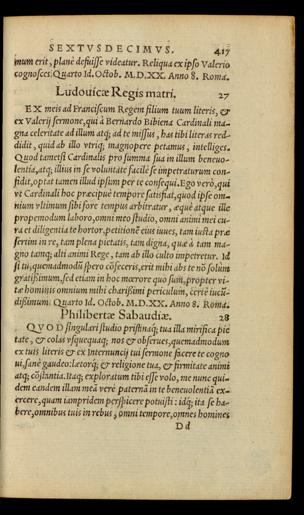 SEXTVS DECIMVS. 417
mum erit, planè defuisse videatur. Reliqua ex ipso Valerio
cognosces: Quarto Id. Octob. M.D.XX. Anno 8. Roma.
Ludouicæ Regis matri. 27
EX meis ad Franciscum Regem filium tuum literis, &
ex Valerij sermone, qui à Bernardo Bibiena Cardinali ma
gna celeritate ad illum atq; ad te missus, has tibi literas red
didit, quid ab illo vtriq; magnopere petamus, intelliges.
Quod tametsi Cardinalis pro summa sua in illum beneuo-
lentia, atq; illius in se voluntate facilè se impetraturum con-
fidit, optat tamen illud ipsum per te consequi. Ego verò, qui
vt Cardinali hoc præcipuè tempore satisfiat, quod ipse om-
nium vltimum sibi fore tempus arbitratur, æquè atque ille
propemodum laboro, omni meo studio, omni animi mei cu-
ra et diligentia te hortor, petitionē eius iuues, tam iusta præ
sertim in re, tam plena pietatis, tam digna, quæ à tam ma-
gno tamq; alti animi Rege, tam ab illo culto impetretur. Id
si tu, quemadmodū spero cōfeceris, erit mihi abs te nō solùm
gratissimum, sed etiam in hoc mœrore quo sum, propter vi-
tæ hominis omnium mihi charissimi periculum, certè iucū-
dissimum: Quarto Id. Octob. M.D.XX. Anno 8. Roma.
Philibertæ Sabaudiæ. 28
QVOD singulari studio pristinaq; tua illa mirifica pie
tate, & colas vsquequaq; nos & obserues, quemadmodum
ex tuis literis & ex Internuncij tui sermone facere te cogno
ui, sanè gaudeo: lætorq; & religione tua, & firmitate animi
atq; cōstantia. Itaq; exploratum tibi esse volo, me nunc qui-
dem eandem illam meā verè paternā in te beneuolentiā ex-
ercere, quam iampridem perspicere potuisti: idq; ita se ha-
bere, omnibus tuis in rebus, omni tempore, omnes homines
Dd